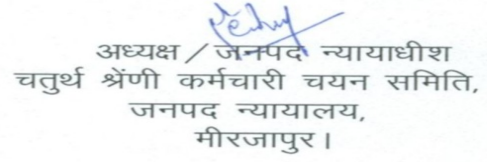 अध्यक्ष / जनपद न्यायाधीश
चतुर्थ श्रेंणी कर्मचारी चयन समिति,
जनपद न्यायालय,
मीरजापुर।